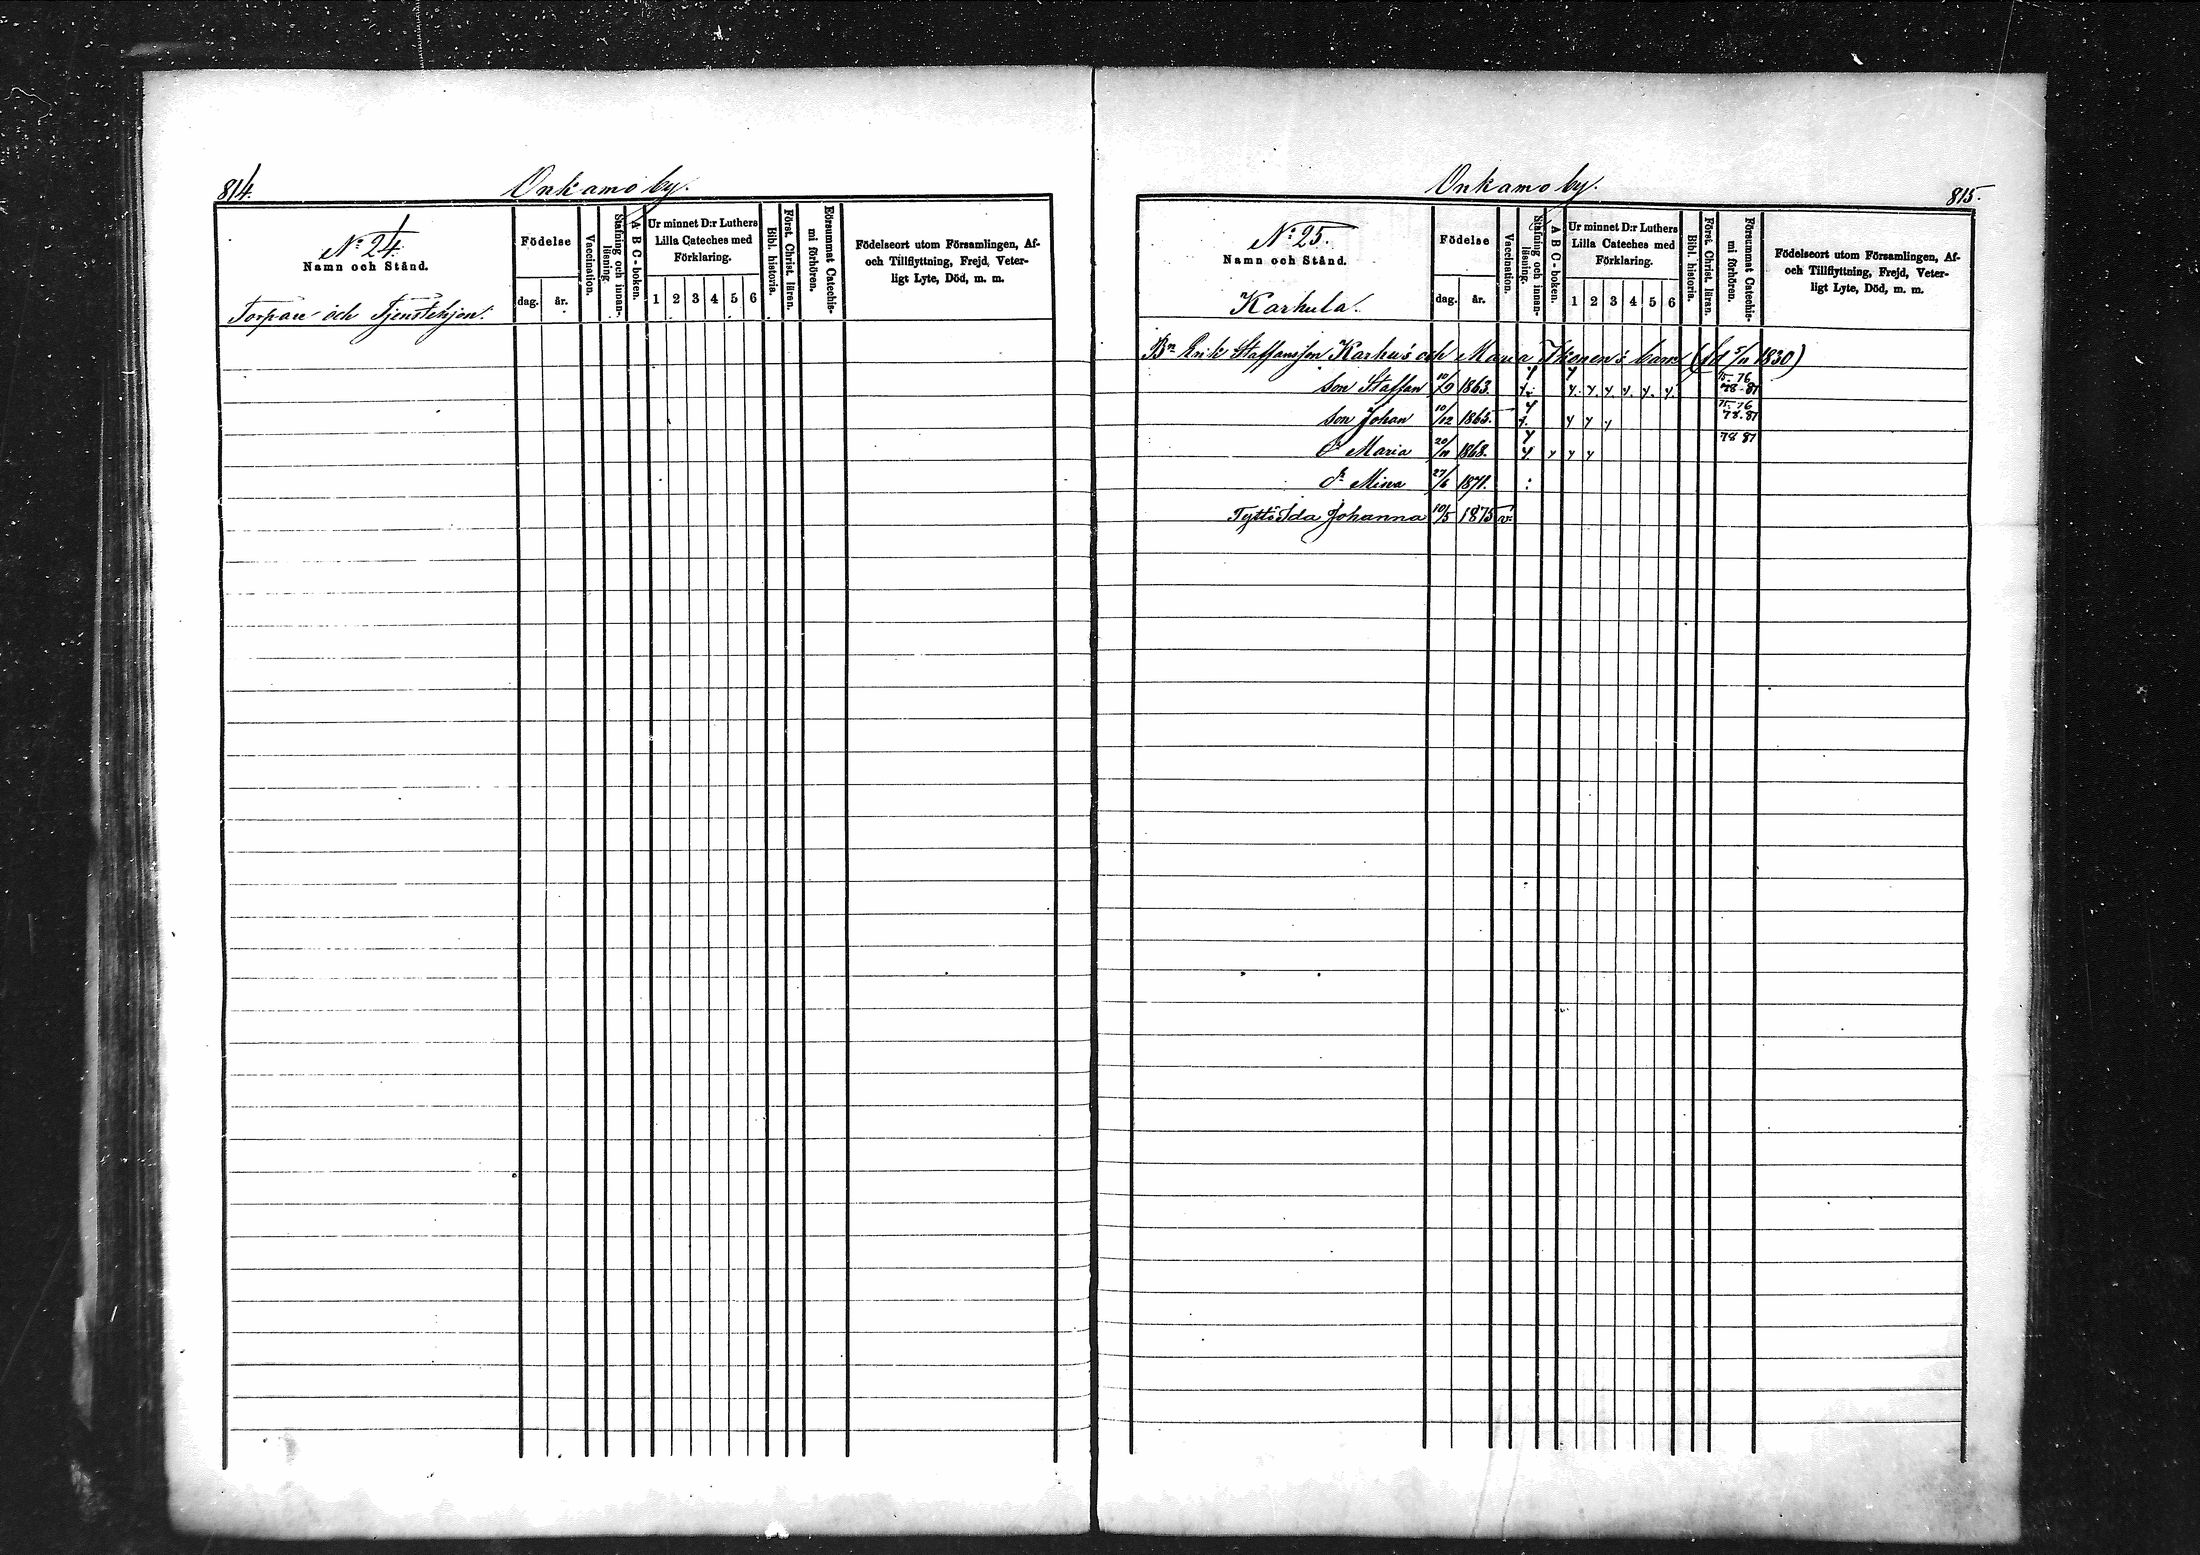 814.
Onkamo by.
No 24.
Namn och Stånd.
Torpare och Tjenstehjon.
Födelse
dag.
år.
Vaccination.
Stafning och innan-
läsning.
A B C-boken.
Ur minnet D:r Luthers
Lilla Cateches med
Förklaring.
1 2 3 4 5 6
Bibl. historia.
Först. Christ. läran.
Försummat Catechis-
mi förhören.
Födelseort utom Församlingen, Af-
och Tillflyttning, Frejd, Veter-
ligt Lyte, Död, m. m.
Onkamo by.
815.
No 25.
Namn och Stånd.
Karhula.
Födelse
dag.
år.
Vaccination.
Stafning och innan-
läsning.
A B C-boken.
Ur minnet D:r Luthers
Lilla Cateches med
Förklaring.
1 2 3 4 5 6
Bibl. historia.
Först. Christ. läran.
Försummat Catechis-
mi förhören.
Födelseort utom Församlingen, Af-
och Tillflyttning, Frejd, Veter-
ligt Lyte, Död, m. m.
Bn Erik Staffansson Karhu's och Maria Ikonen's barn (fd 5/11 1830)
son Staffan 10/9 1863. 75-76 78-81
son Johan 10/12 1865. 75-76 78.81
dr Maria 20/11 1868. 78 81
dr Mina 27/6 1871.
Tyttö Ida Johanna 10/5 1875 v.